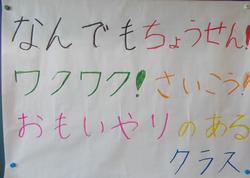 なんでもちょうせん!
ワクワク!さいこう!
おもいやりのある
クラス